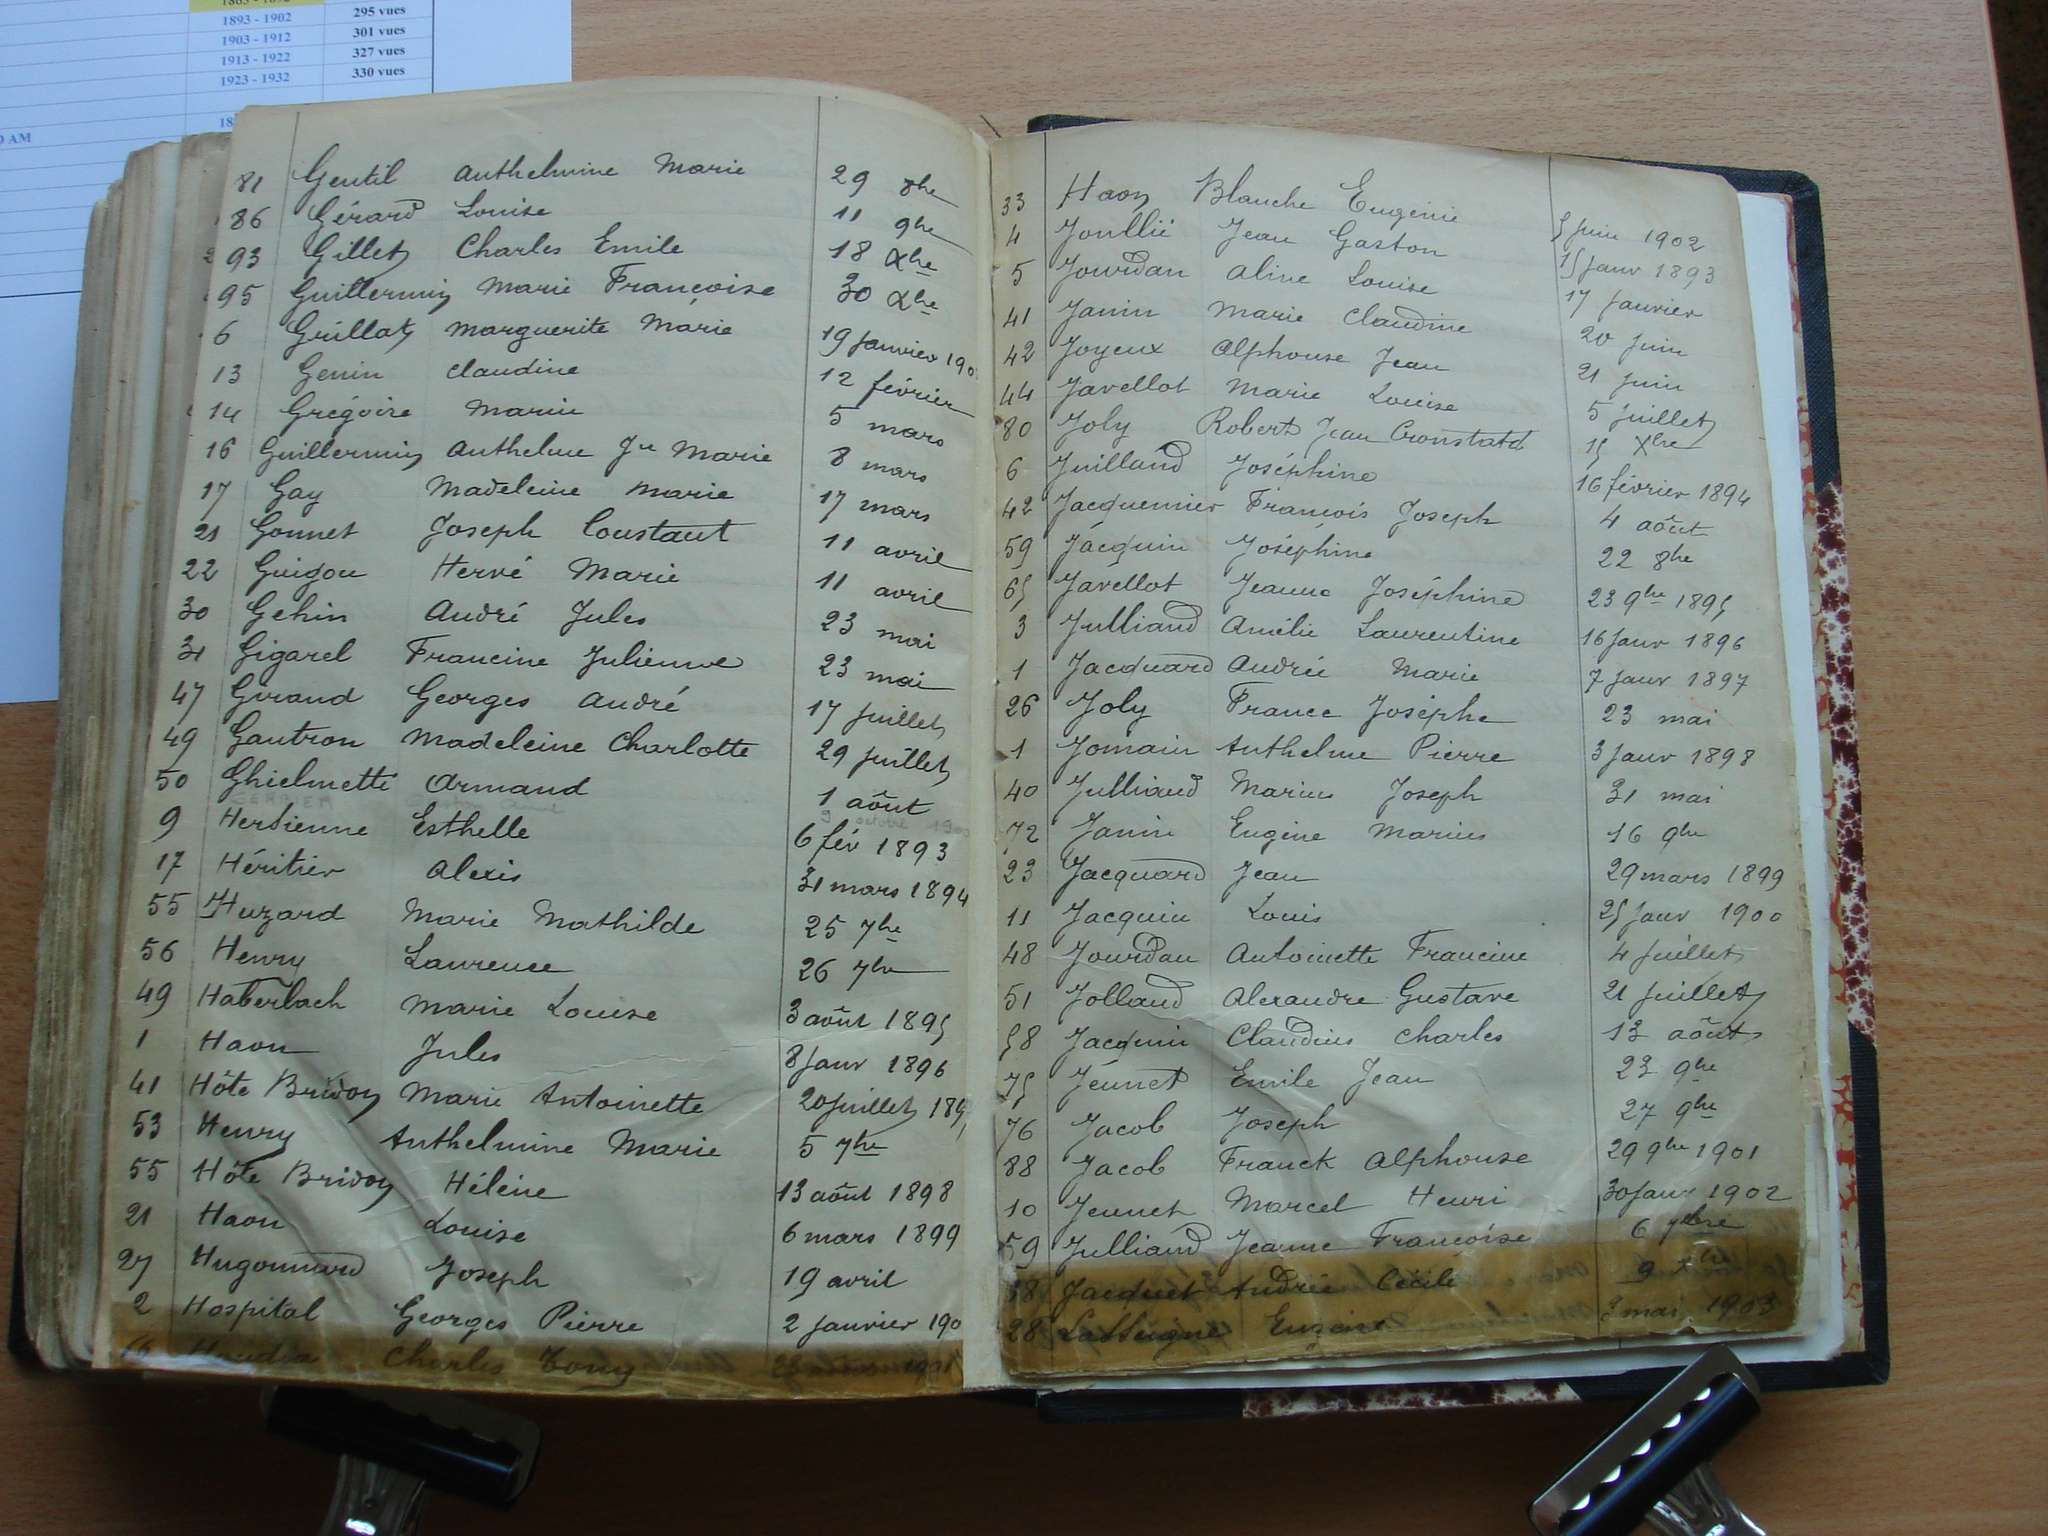 1893 - 1902 295 vues
1903 - 1912 301 vues
1913 - 1922 327 vues
1923 - 1932 330 vues
AM
81 Gentil Anthelmine Marie 29 8bre
86 Gérard Louise 11 9bre
93 Gillet Charles Emile 18 Xbre
95 Guillermin Marie Françoise 30 Xbre
6 Grillat Marguerite Marie 19 Janvier 190
13 Genin Claudine 12 février
14 Grégoire Marie 5 mars
16 Guillermin Anthelme Jn Marie 8 mars
17 Gay Madeleine Marie 17 mars
21 Gonnet Joseph Constant 11 avril
22 Guigou Hervé Marie 11 avril
30 Gehin André Jules 23 mai
31 Gigarel Francine Julienne 23 mai
47 Giraud Georges André 17 juillet
49 Gautron Madeleine Charlotte 29 juillet
50 Ghielmetti Armand 1 août
9 Herbienne Esthelle 6 fév 1893
17 Héritier Alexis 31 mars 1894
55 Huzard Marie Mathilde 25 7bre
56 Henry Laurence 26 7bre
49 Haberbach Marie Louise 3 août 1895
1 Haon Jules 8 Janv 1896
41 Hôte Bridon Marie Antoinette 20 juillet 189
53 Henry Anthelmine Marie 5 7bre
55 Hôte Bridon Hélène 13 août 1898
21 Haon Louise 6 mars 1899
27 Hugonnard Joseph 19 avril
2 Hospital Georges Pierre 2 janvier 190
Charles Tony 1901
33 Haon Blanche Eugénie 5 Juin 1902
4 Joullié Jean Gaston 15 Janv 1893
5 Jourdan Aline Louise 17 Janvier
41 Janin Marie Claudine 20 Juin
42 Joyeux Alphonse Jean 21 Juin
44 Javellot Marie Louise 5 Juillet
80 Joly Robert Jean Cronstatd 15 Xbre
6 Juilland Joséphine 16 février 1894
42 Jacquemier François Joseph 4 août
59 Jacquin Joséphine 22 8bre
65 Javellot Jeanne Joséphine 23 9bre 1895
3 Julliand Amélie Laurentine 16 Janv 1896
1 Jacquard Andrée Marie 7 Janv 1897
26 Joly France Josèphe 23 mai
1 Jomain Anthelme Pierre 3 Janv 1898
40 Julliand Marius Joseph 31 mai
72 Janin Eugène Marius 16 9bre
23 Jacquard Jean 29 mars 1899
11 Jacquin Louis 25 Janv 1900
48 Jourdan Antoinette Francine 4 Juillet
51 Jolland Alexandre Gustave 21 Juillet
58 Jacquin Claudius Charles 13 août
75 Jeunet Emile Jean 23 9bre
76 Jacob Joseph 27 9bre
88 Jacob Franck Alphonse 29 9bre 1901
10 Jeunet Marcel Henri 30 Janv 1902
59 Julliand Jeanne Françoise 6 7bre
38 Jacquet Andrée Cécile 9 Xbre
28 Lassaigne Eugène 3 mai 1903